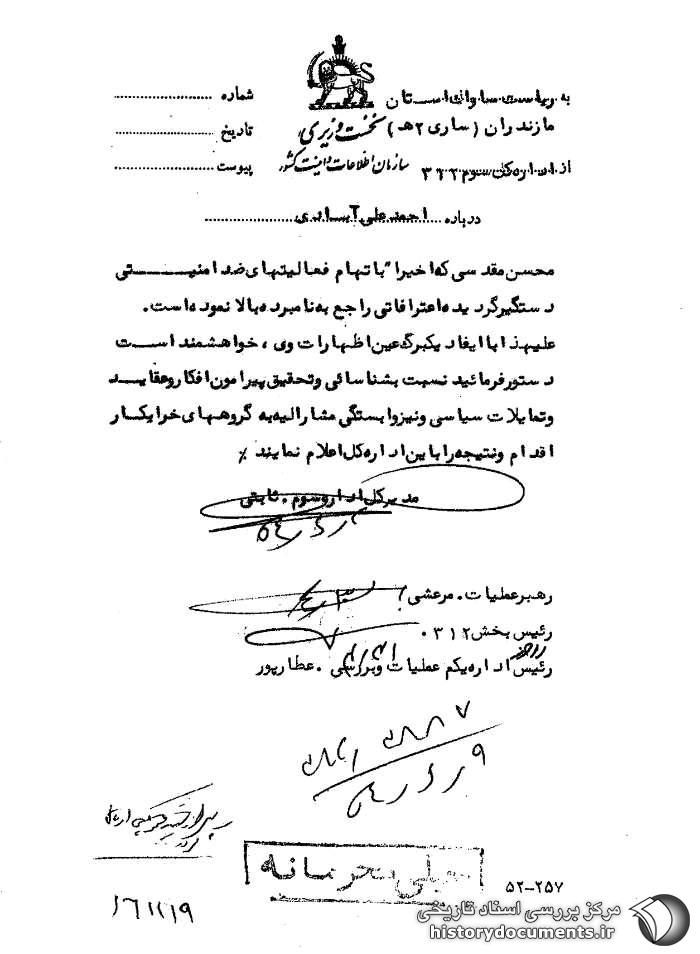 به ریاست ساواک استان
مازندران (ساری ۲هـ)
از اداره کل سوم ۳۱۲
نخست وزیری
سازمان اطلاعات و امنیت کشور
شماره
تاریخ
پیوست
درباره احمد علی آبادی
محسن مقدسی که اخیرا" باتهام فعالیتهای ضد امنیتی
دستگیر گردیده اعترافاتی راجع به نامبرده بالا نموده است.
علیهذا با ایفاد یکبرگ عین اظهارات وی، خواهشمند است
دستور فرمائید نسبت بشناسائی و تحقیق پیرامون افکار و عقاید
و تمایلات سیاسی و نیز وابستگی مشارالیه به گروههای خرابکار
اقدام و نتیجه را باین اداره کل اعلام نمایند ٪
مدیرکل اداره سوم. ثابتی
رهبر عملیات. مرعشی
رئیس بخش ۳۱۲.
رئیس اداره یکم عملیات و بررسی. عطارپور
خیلی محرمانه
۵۲-۲۵۷
مرکز بررسی اسناد تاریخی
historydocuments.ir